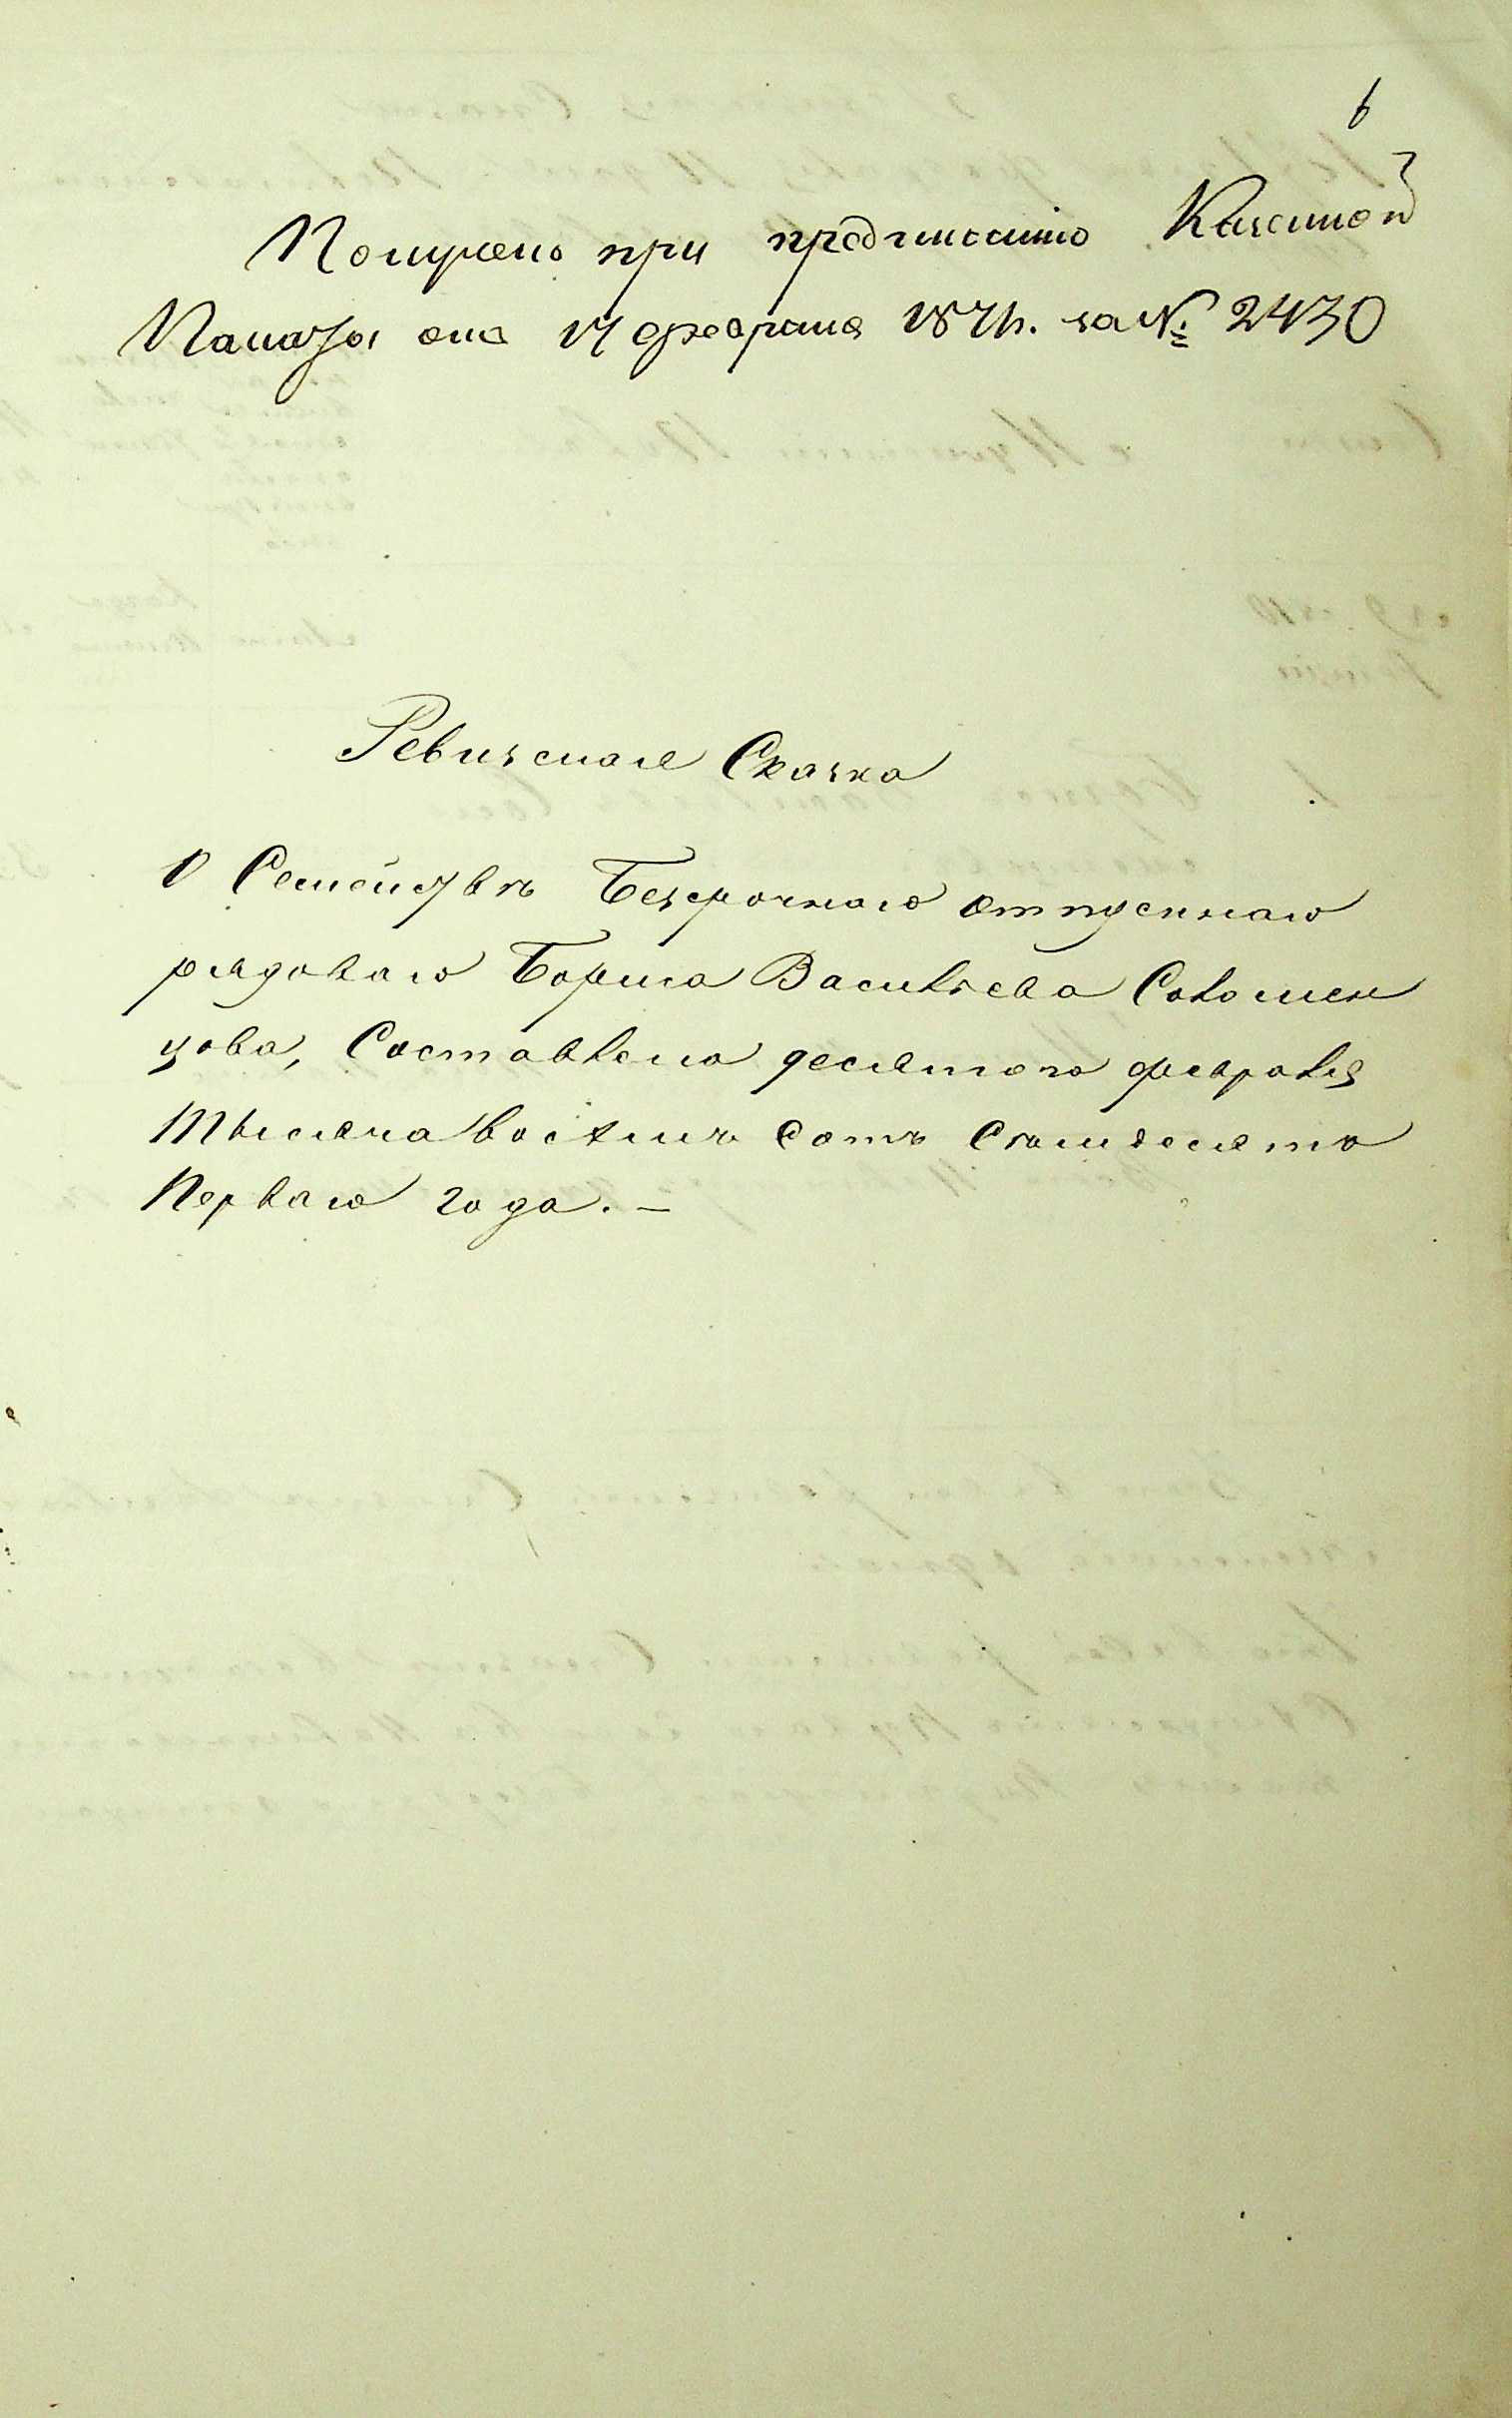 6
Получено при предписанiю Казенной
Палаты отъ 17 февраля 1871г. за № 2430
Ревизская Сказка
О Семействѣ Безсрочнаго отпускнаго
рядоваго Бориса Васильева Соломен
цова, Составлена десятого февраля
Тысяча восѣмъ сотъ Сѣмидесято
Перваго года. –